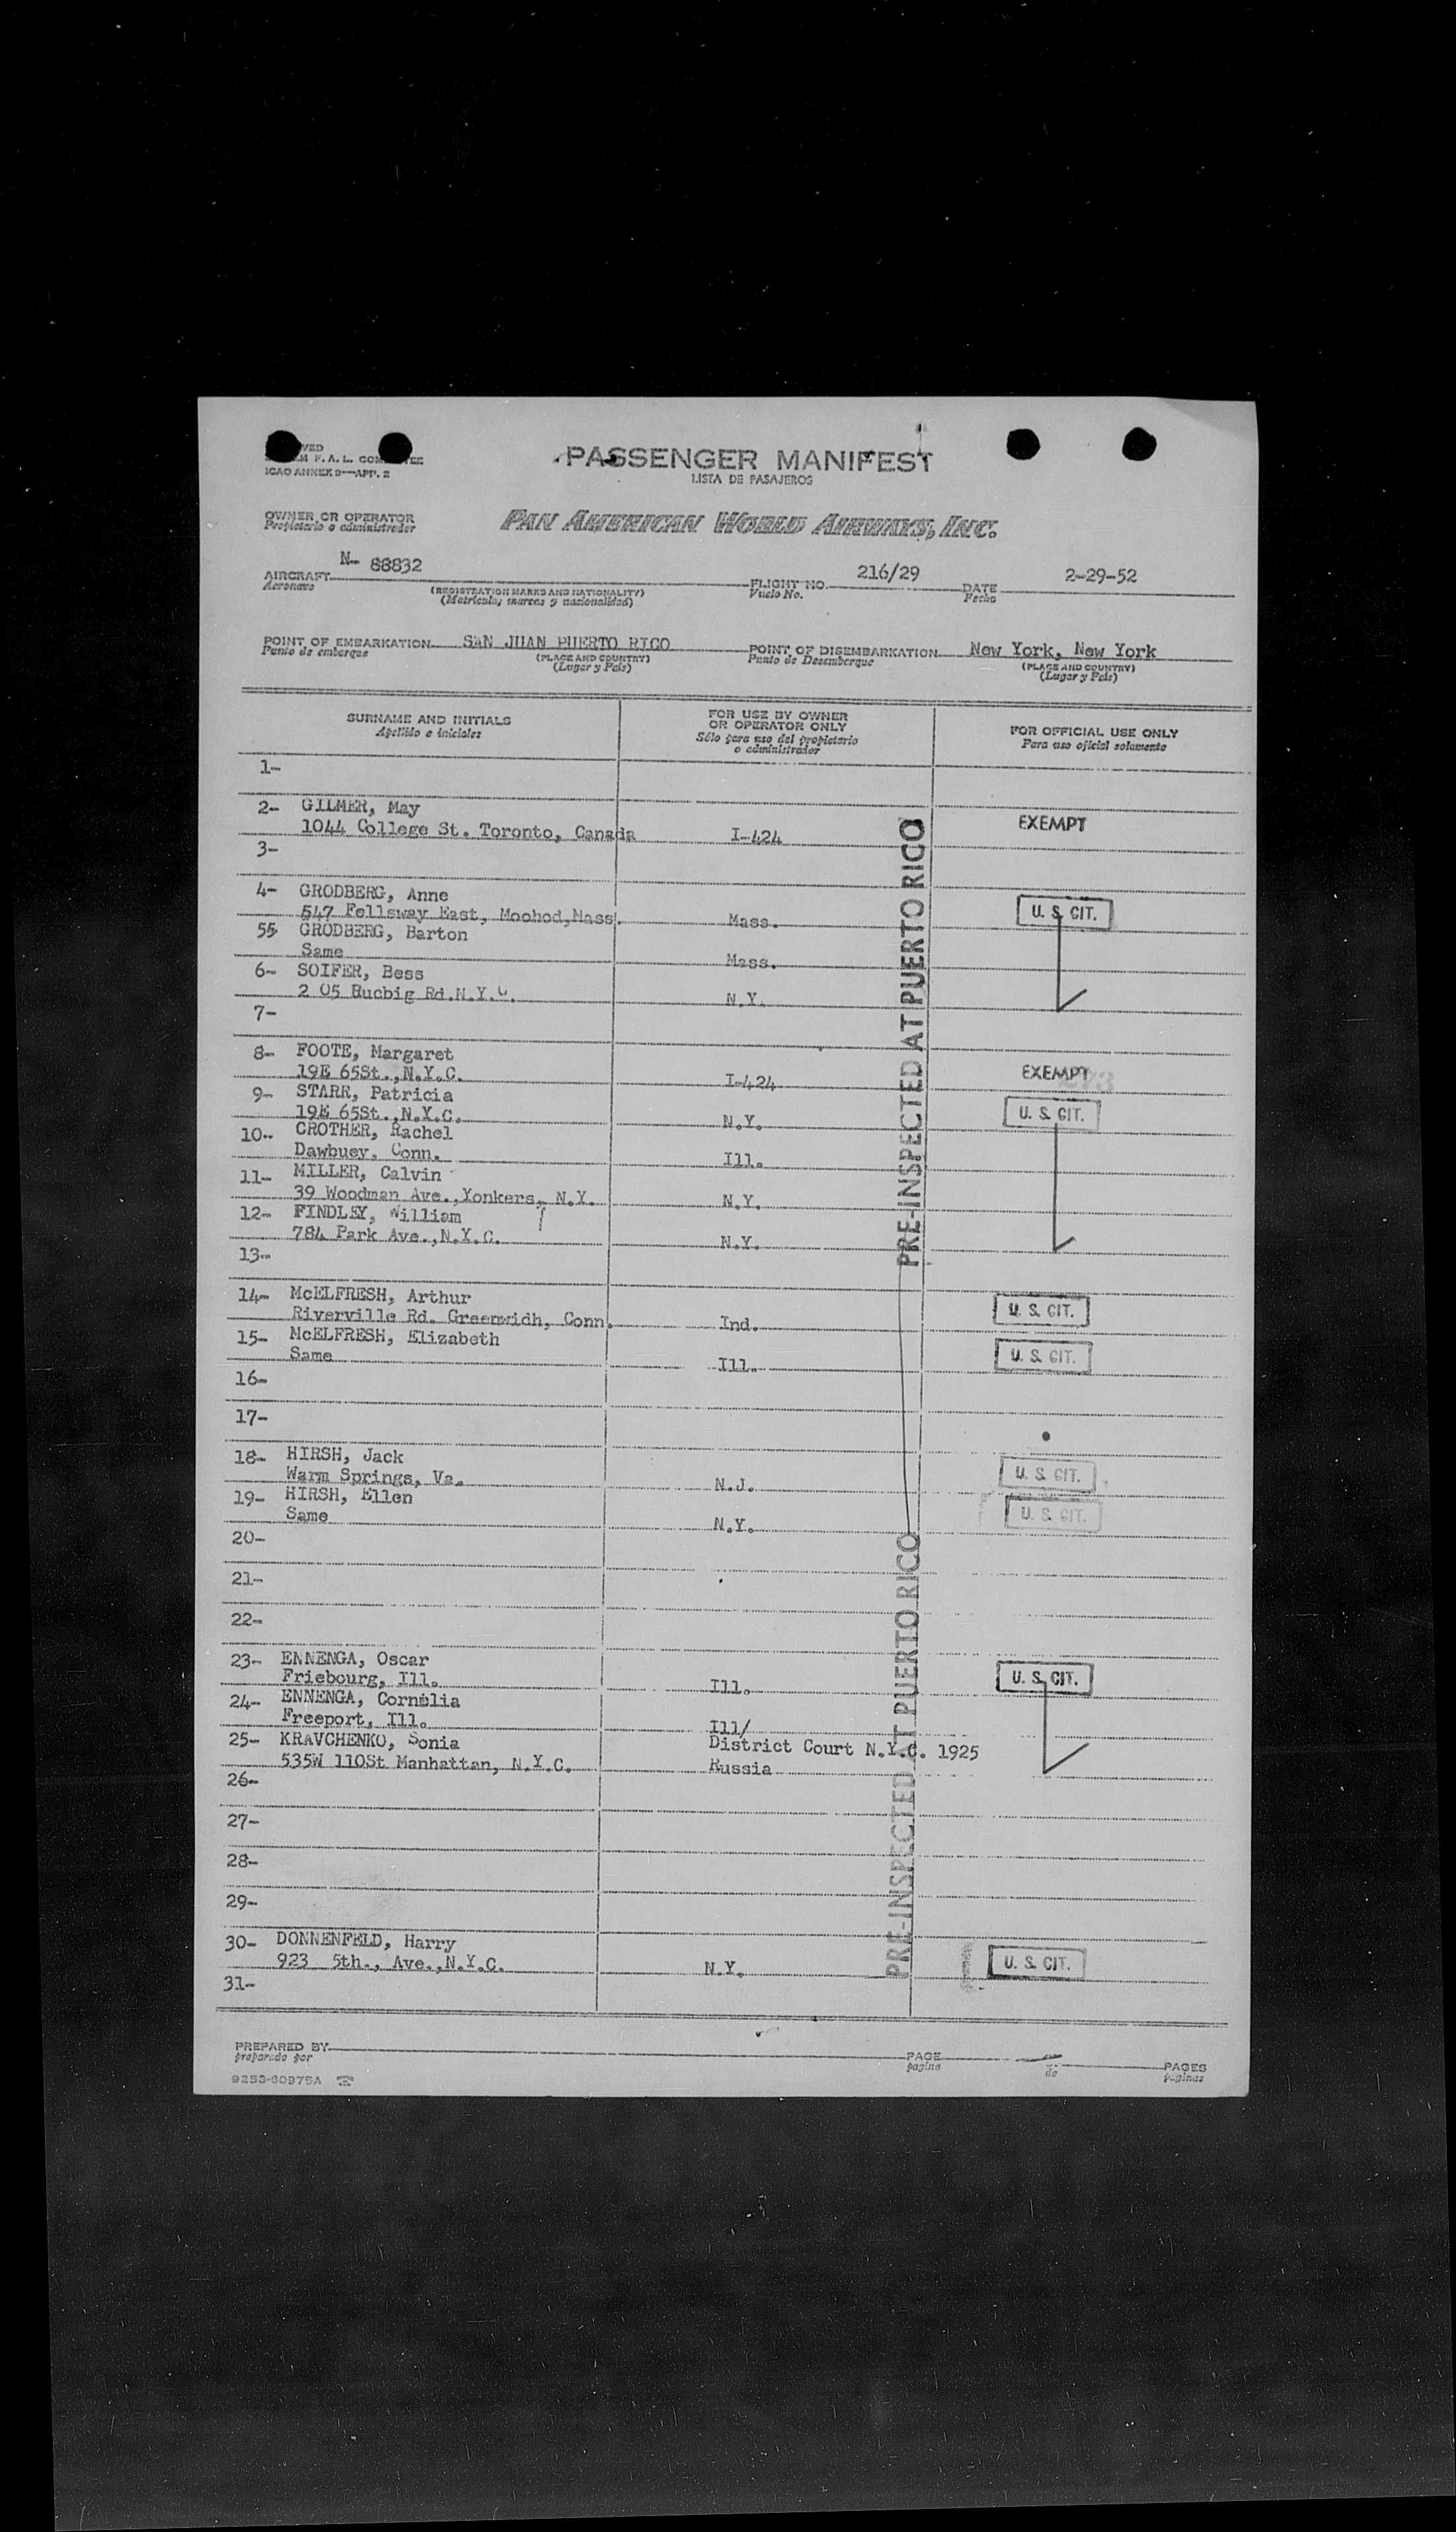 F. A. L.
ICAO ANNEX 9—APP. 2
PASSENGER MANIFEST
LISTA DE PASAJEROS
OWNER OR OPERATOR
Propietario o administrador
PAN AMERICAN WORLD AIRWAYS, INC.
AIRCRAFT N- 88832 FLIGHT NO. 216/29 DATE 2-29-52
Aeronave (REGISTRATION MARKS AND NATIONALITY) Vuelo No. Fecha
(Matrícula, marcas y nacionalidad)
POINT OF EMBARKATION SAN JUAN PUERTO RICO POINT OF DISEMBARKATION New York, New York
Punto de embarque (PLACE AND COUNTRY) Punto de Desembarque (PLACE AND COUNTRY)
(Lugar y País) (Lugar y País)
SURNAME AND INITIALS
Apellido e iniciales
FOR USE BY OWNER
OR OPERATOR ONLY
Sólo para uso del propietario
o administrador
FOR OFFICIAL USE ONLY
Para uso oficial solamente
1-
2- GILMER, May
1044 College St. Toronto, Canada I-424 EXEMPT
3-
4- GRODBERG, Anne
547 Fellsway East, Moohod, Mass. Mass. U. S. CIT.
55 GRODBERG, Barton
Same Mass.
6- SOIFER, Bess
2 05 Rd. N.Y.C. N.Y.
7-
8- FOOTE, Margaret
19E 65St., N.Y.C. I-424 EXEMPT
9- STARR, Patricia
19E 65St., N.Y.C. N.Y. U. S. CIT.
10- CROTHER, Rachel
Dawbuey, Conn. Ill.
11- MILLER, Calvin
39 Woodman Ave., Yonkers, N.Y. N.Y.
12- FINDLEY, William
784 Park Ave., N.Y.C. N.Y.
13-
14- McELFRESH, Arthur
Riverville Rd. Greenwidh, Conn. Ind. U. S. CIT.
15- McELFRESH, Elizabeth
Same Ill. U. S. CIT.
16-
17-
18- HIRSH, Jack
Warm Springs, Va. N.J. U. S. CIT.
19- HIRSH, Ellen
Same N.Y. U. S. CIT.
20-
21-
22-
23- ENNENGA, Oscar
Friebourg, Ill. Ill. U. S. CIT.
24- ENNENGA, Cornelia
Freeport, Ill. Ill/
25- KRAVCHENKO, Sonia District Court N.Y.C. 1925
535W 110St Manhattan, N.Y.C. Russia
26-
27-
28-
29-
30- DONNENFELD, Harry
923 5th., Ave., N.Y.C. N.Y. U. S. CIT.
31-
PRE-INSPECTED AT PUERTO RICO
PRE-INSPECTED AT PUERTO RICO
PREPARED BY PAGE PAGES
preparado por pagina de paginas
9253-60975A